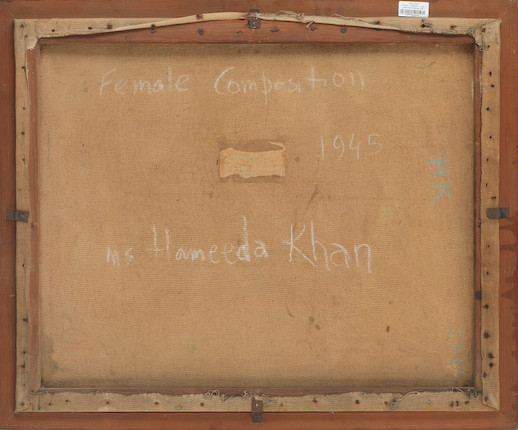 Female Composition
1945
ms. Hameeda Khan